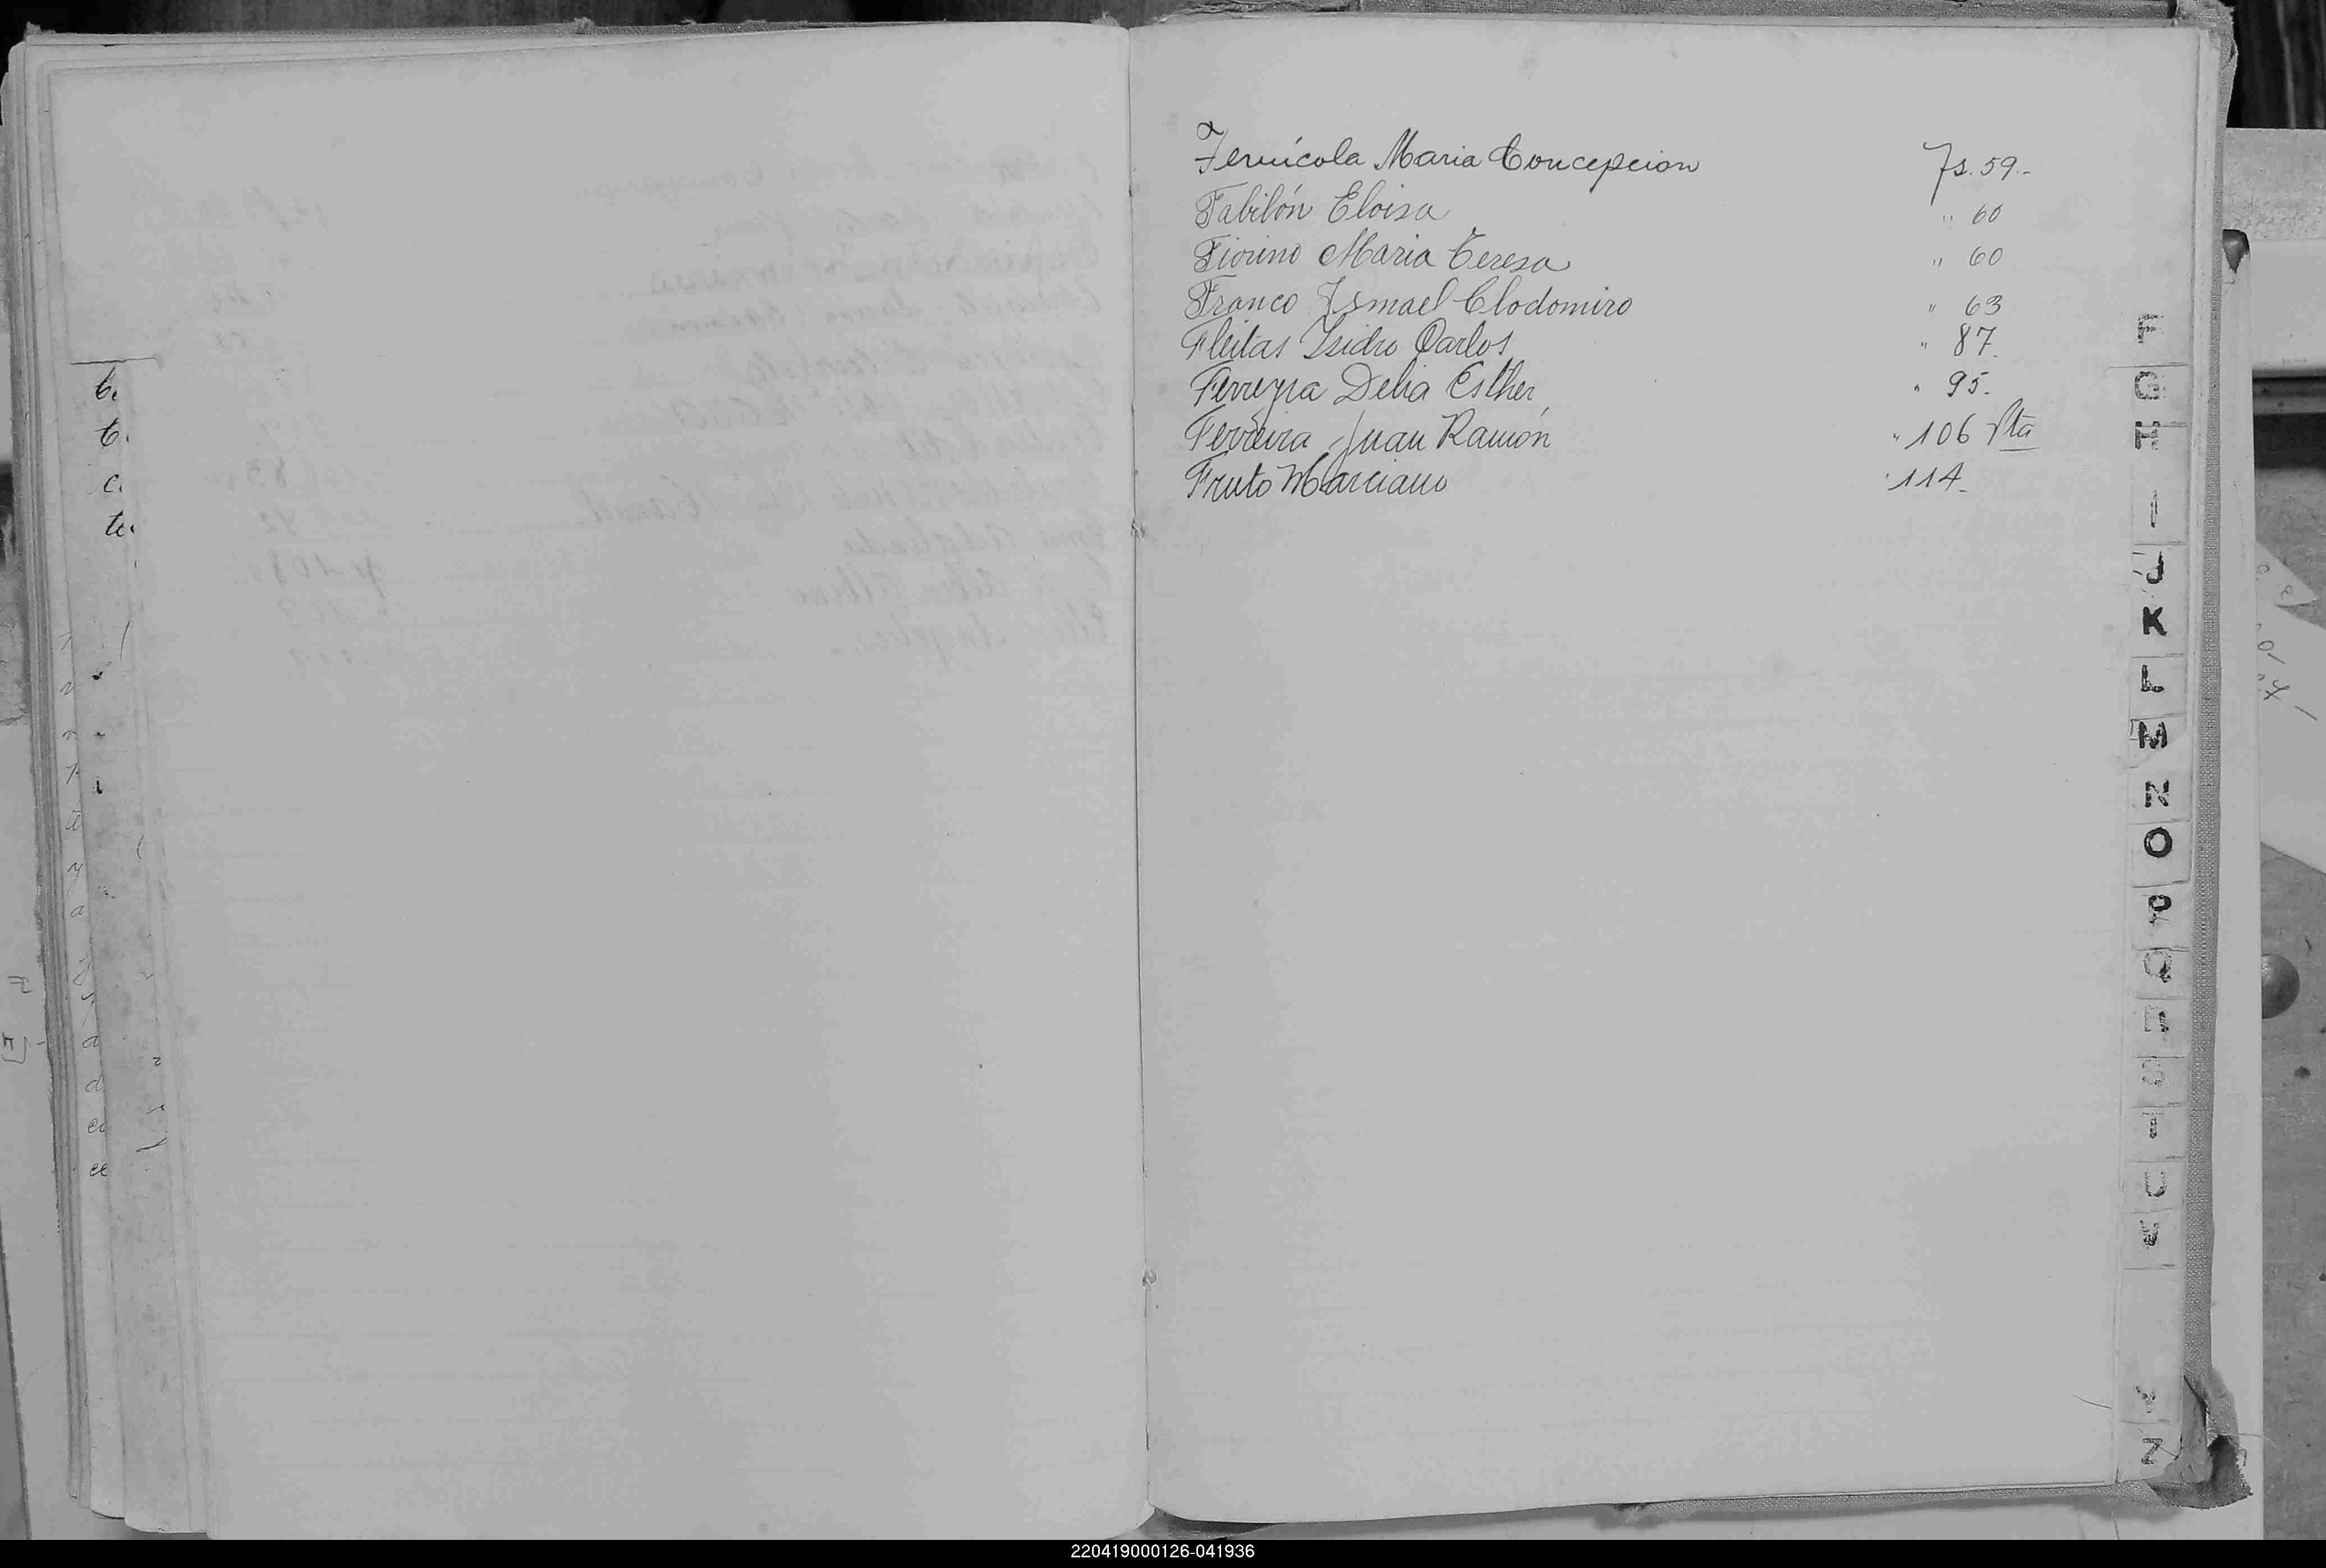 Fernícola Maria Concepcion Fs. 59.-
Fabilón Eloisa " 60
Fiorino Maria Teresa " 60
Franco Ismael Clodomiro " 63
Fleitas Isidro Carlos " 87.
Ferreyra Delia Esther " 95.
Ferreira Juan Ramón " 106 vta
Fruto Marciano " 114.
F
G
H
I
J
K
L
M
N
O
P
Q
R
S
T
U
V
Y
Z
220419000126-041936